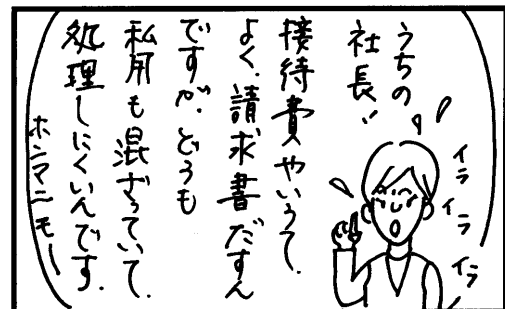 うちの
社長〃
接待費やいうて、
よく、請求書だすん
ですが、どうも
私用も混ざっていて、
処理しにくいんです。
ホンマニモー
イライライライラ